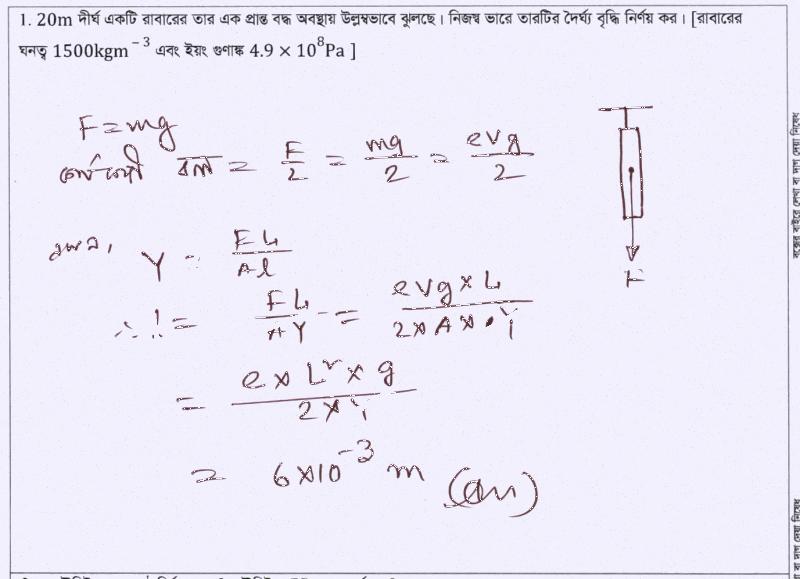 1. 20m দীর্ঘ একটি রাবারের তার এক প্রান্ত বদ্ধ অবস্থায় উল্লম্বভাবে ঝুলছে। নিজস্ব ভারে তারটির দৈর্ঘ্য বৃদ্ধি নির্ণয় কর। [রাবারের
ঘনত্ব 1500kgm⁻³ এবং ইয়ং গুণাঙ্ক 4.9 × 10⁸Pa ]
F = mg
বল = F/2 = mg/2 = ρVg/2
F
Y = FL/Al
∴ l = FL/AY = ρVg×L/2×A×Y
= ρ×L²×g/2×Y
= 6×10⁻³ m (Ans)